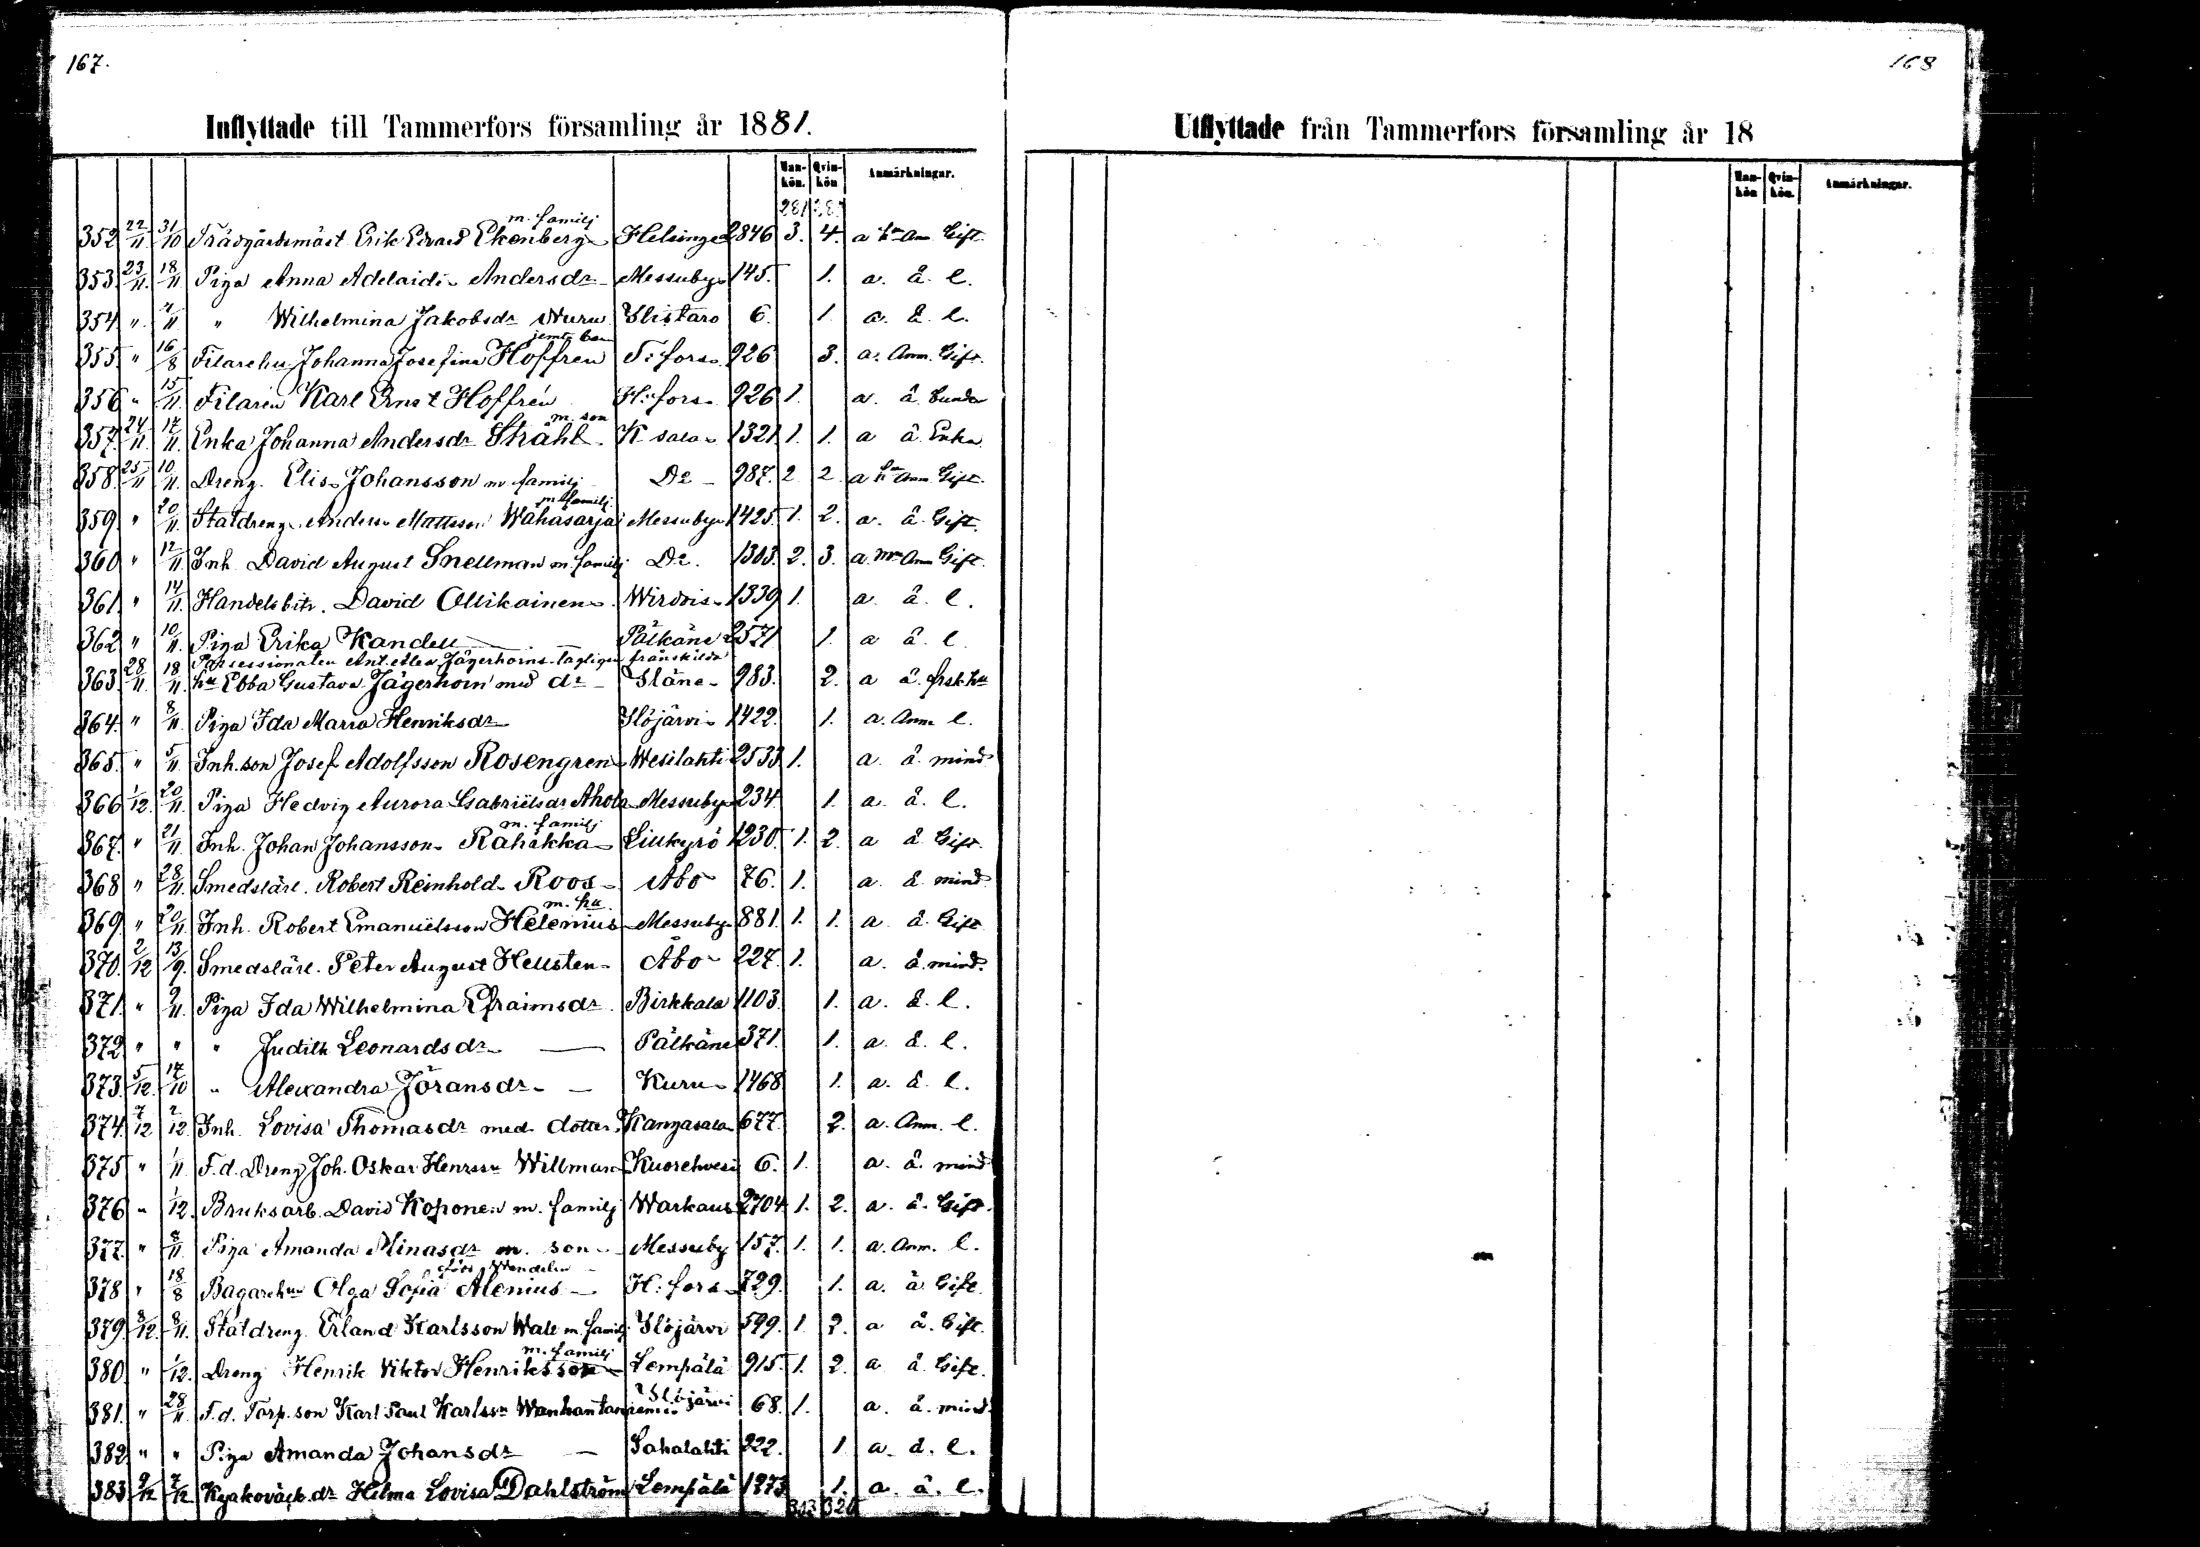 167.
Inflyttade till Tammerfors församling år 1881.
Man-kön. Qvin-kön Anmärkningar.
281
352 22/11 31/10 Trädgårdsmäst Erik Edvard Ekenberg m. familj Helsinge 2846 3. 4. a Gift
353. 23/11. 18/11 Piga Anna Adelaide Andersdr Messuby 145. 1. a. å. l.
354 " /11 " Wilhelmina Jakobsdr Wuru Ylistaro 6. 1 a. å. l.
355. " 16/8 Filarehu Johanna Josefina Hoffren jemte barn T:fors 926 3. a. Anm. Gift.
356 " 15/11. Filaren Karl Ernst Hoffrén H:fors 926 1. a. å.
357. 24/11 17/11. Enka Johanna Andersdr Stråhl m. son K sala 1321 1. 1. a å Enka
358. 25/11 10/11. Dreng. Elis Johansson m familj Do 987. 2 2. a Anm Gift.
359 " 20/11. Statdreng Anders Mattsson Wahasarja m familj Messuby 1425. 1. 2. a. å. Gift.
360 " 12/11 Inh. David August Snellman m. familj Do. 1303. 2. 3. a. Anm Gift.
361 " 14/11. Handelsbitr. David Ollikainen Wirdois 1339 1. a. å. l.
362 " 10/11. Piga Erika Kandell Pälkäne 2571 1. a å l
363 28/11. 18/11. Possessionaten Ant. Alex Jägerhorns lagligen frånskilda
hu Ebba Gustava Jägerhorn med dr 983. 2. a å. frsk. hu
364. " 8/11. Piga Ida Maria Henriksdr Ylöjärvi 1422. 1. a. Anm. l.
365. " 5/11. Inh. son Josef Adolfsson Rosengren Wesilahti 2533 1. a. å. mind
366 1/12. 20/11. Piga Hedvig Aurora Gabrielsdr Ahola Messuby 234. 1. a. å. l.
367. " 21/11. Inh. Johan Johansson Rahikka m. familj Liukyrö 1230. 1. 2. a å Gift.
368 " 28/11. Smedslärl. Robert Reinhold Roos Åbo 76. 1. a. å mind
369 " 20/11. Inh. Robert Emanuelsson Helenius m. hu. Messuby 881 1. 1. a å. Gift
370. 2/12 13/9. Smedslärl. Peter August Hellsten Åbo 227. 1. a. å. mind.
371. " 9/11. Piga Ida Wilhelmina Efraimsdr. Birkkala 1103. 1. a. å. l.
372 " " " Judith Leonardsdr Pälkäne 371. 1. a. å. l.
373. 5/12. 17/10 " Alexandra Jöransdr Kuru 1468 1. a. å. l.
374. 7/12 2/12 Inh. Lovisa Thomasdr med dotter Kangasala 677. 2. a. Anm. l.
375 " 1/11. F.d. Dreng Joh. Oskar Henrssn Willman Kuorehvesi 6. 1. a. å. mind
376 " 1/12. Bruksarb. David Koponen m. familj Warkaus 2704 1. 2. a. å. Gift.
377. " 8/11. Piga Amanda Minasdr m. son Messuby 157. 1. 1. a. Anm. l.
378 " 18/8 Bagarehu Olga Sofia Alenius född Wendelin H:fors 729. 1. a. å Gift.
379. 8/12. 8/11. Statdreng. Erland Karlsson Wall m. familj Ylöjärvi 599. 1. 2. a å. Gift.
380 " 1/12. Dreng Henrik Viktor Henriksson m. familj Lempälä 915. 1. 2. a å. Gift.
381. " 28/11 F.d. Torp. son Karl Paul Karlssn Ylöjärvi 68. 1. a. å. mind.
382 " " Piga Amanda Johansdr Sahalahti 222. 1 a. å. l.
383 9/12 7/12 Hilma Lovisa Dahlström Lempälä 1273 1. a. å. l.
313 326
168
Utflyttade från Tammerfors församling år 18
Man-kön Qvin-kön. Anmärkningar.